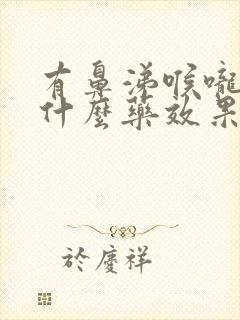 有鼻涕喉嚨
什麼藥效果
於慶祥